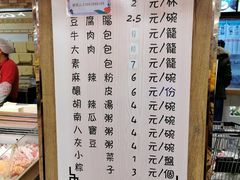 2元/杯
豆腐腦 2.5元/碗
牛肉包 元/籠
大肉包 元/籠
素包 7元/籠
麻辣粉 6元/碗
釀皮 6元/份
胡辣湯 4元/碗
南瓜粥 4元/碗
八寶粥 4元/碗
灰豆粥 4元/碗
小菜 1元/盤
粽子 3元/個